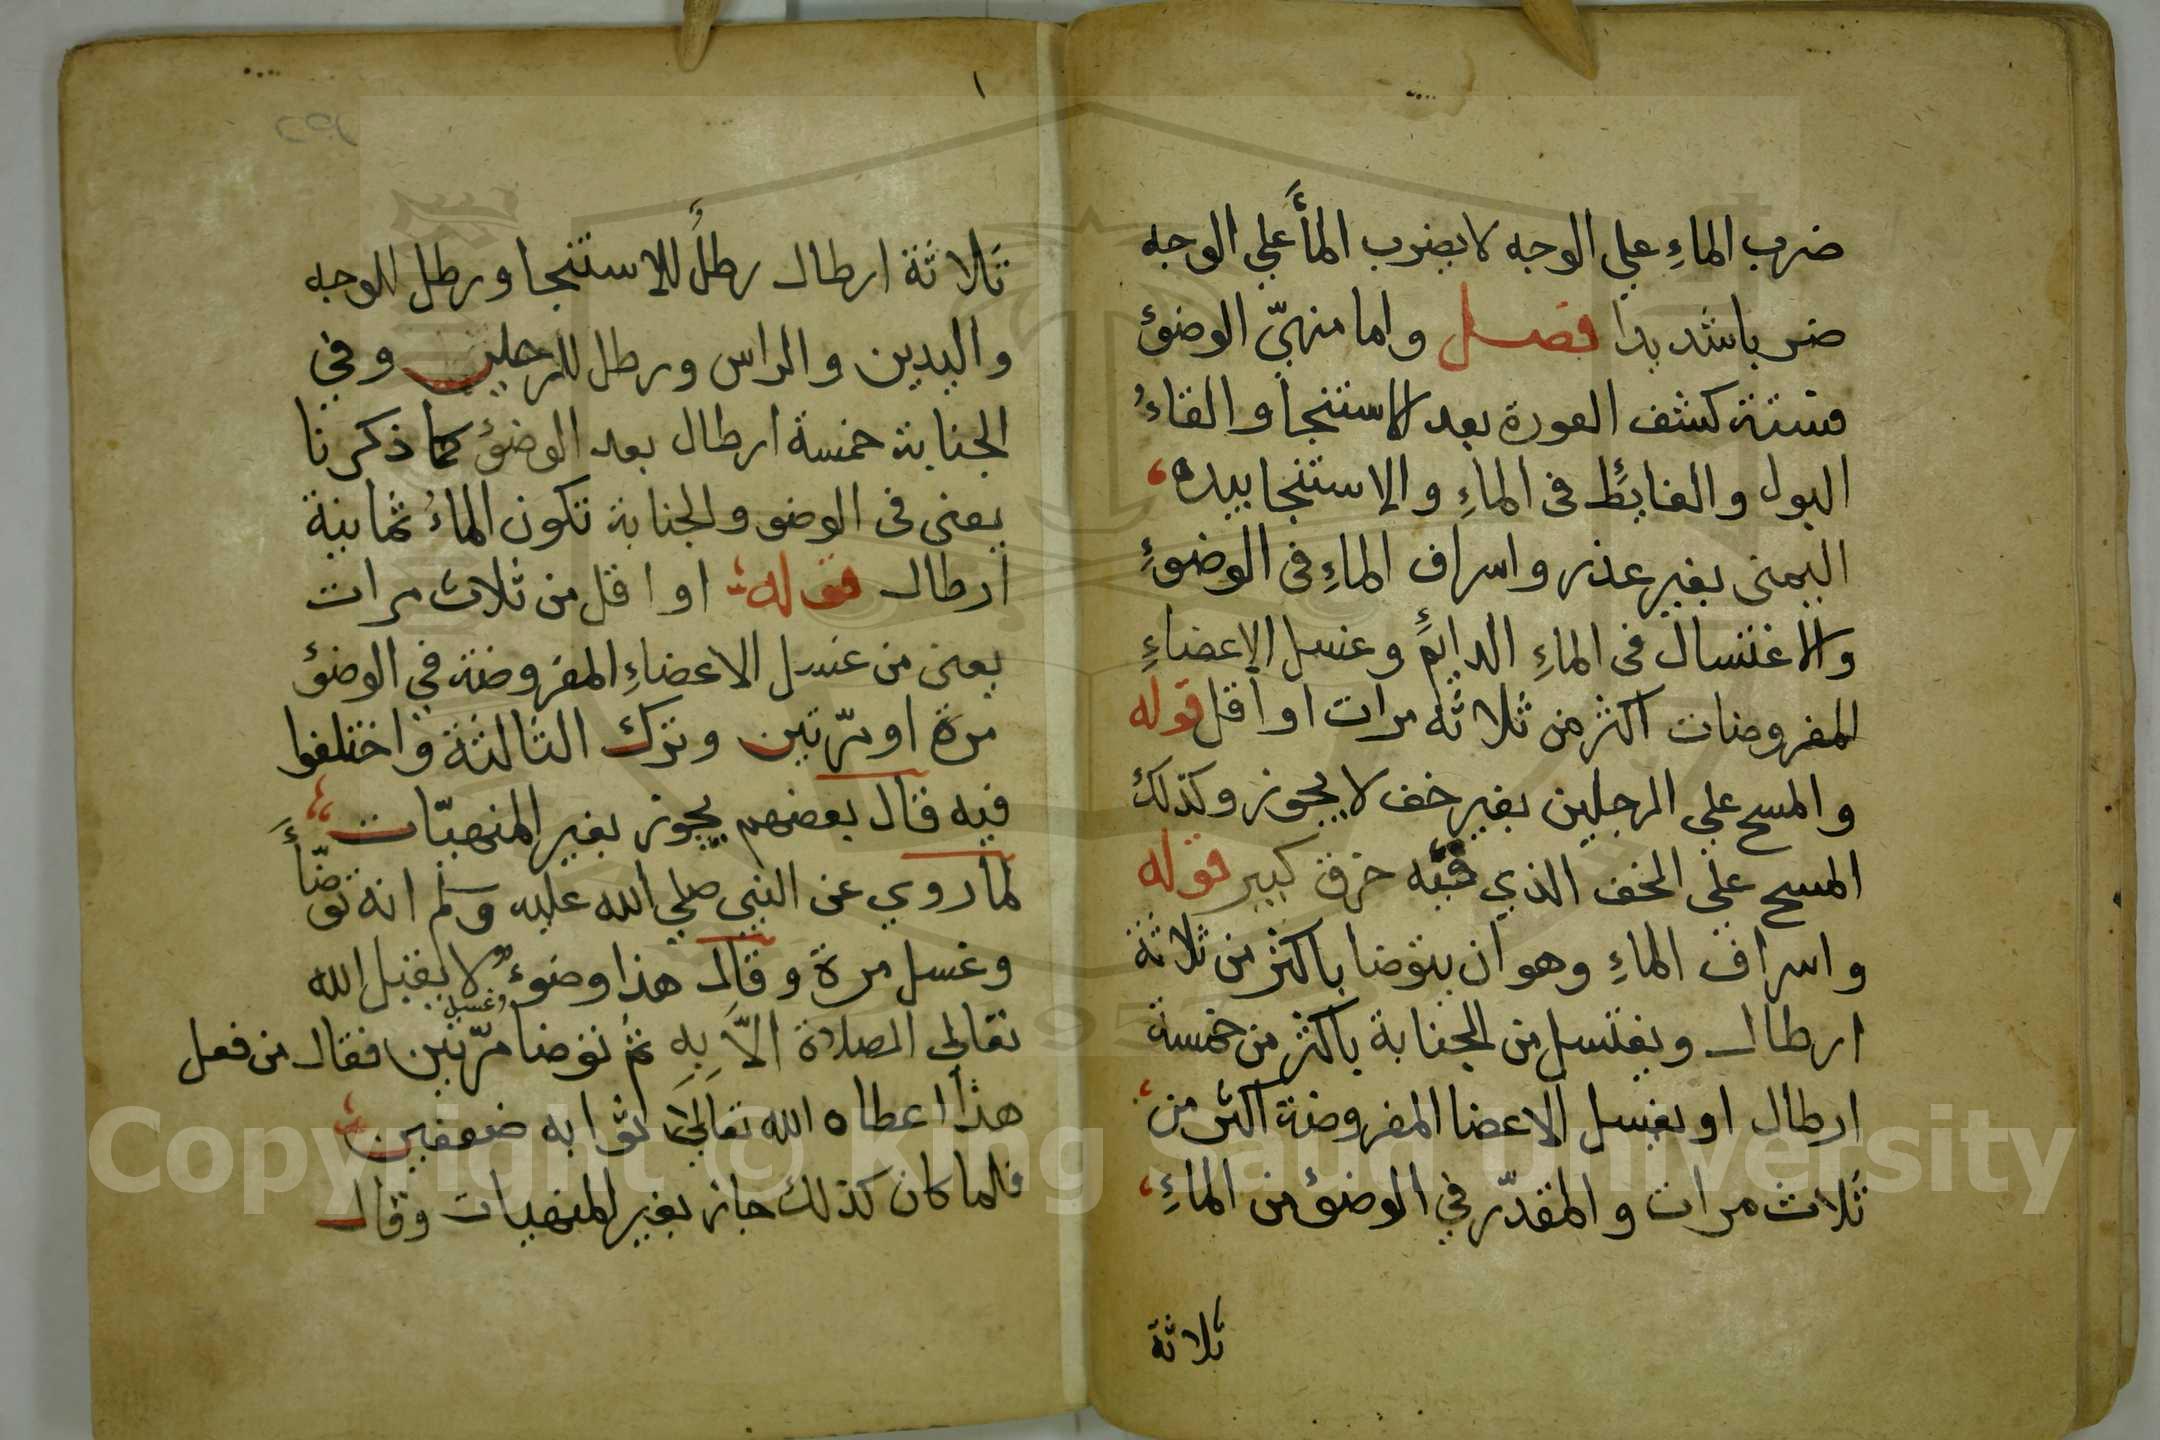 ضرب الماءِ علي الوجه لا يضرب المأَ علي الوجه
ضربا شديدا فصل واما منهيّ الوضوء
فستة كشف العورة بعد الاستنجا والقاءُ
البول والغايط في الماءِ والاستنجا بيده
اليمنى بغير عذر واسراف الماءِ في الوضوءِ
والاغتسال في الماءِ الدايم وغسل الاعضاءِ
المفروضات اكثر من ثلاثة مرات او اقل قوله
والمسح علي الرجلين بغير خف لا يجوز وكذلك
المسح علي الخف الذي فيه خرق كبير قوله
واسراف الماءِ وهو ان يتوضا باكثر من ثلاثة
ارطال ويغتسل من الجنابة باكثر من خمسة
ارطال او يغسل الاعضا المفروضة اكثر من
ثلاث مرات والمقدّر في الوضوء من الماءِ
ثلاثة
١
ثلاثة ارطال رطلٌ للاستنجا ورطل للوجه
واليدين والراس ورطل للرجلين وفي
الجنابة خمسة ارطال بعد الوضوء كما ذكرنا
يعنى فى الوضو والجنابة تكون الماءُ ثمانية
ارطال قوله او اقل من ثلاث مرات
يعنى من غسل الاعضاءِ المفروضة في الوضوء
مرة او مرّتين وترك الثالثة واختلفوا
فيه قال بعضهم يجوز بغير المنهيّات
لما روي عن النبي صلي الله عليه وسلم انه توضّأَ
وغسل مرة وقال هذا وضوءٌ لا يقبل الله
تعالي الصلاة الاَّ بِهِ ثم توضا وغسل مرّتين فقال من فعل
هذا اعطاه الله تعالي ثوابه ضعفين
فلما كان كذلك جاز بغير المنهيات وقال
Copyright © King Saud University